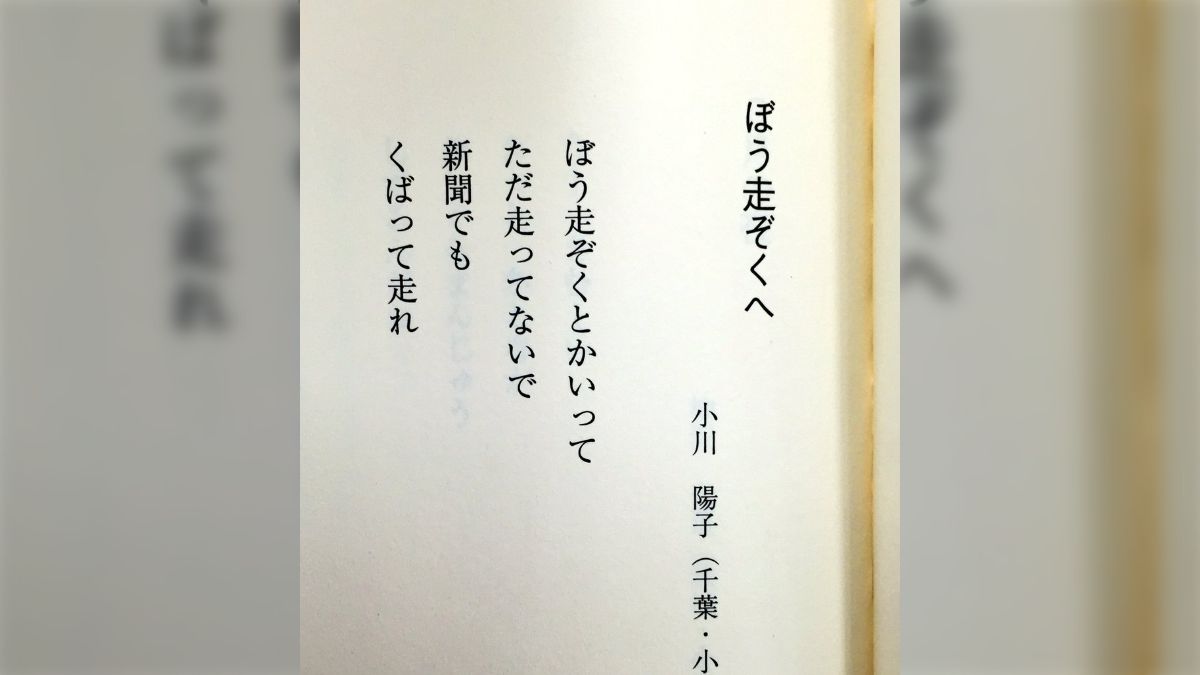 ぼう走ぞくへ
小川　陽子（千葉・小
ぼう走ぞくとかいって
ただ走ってないで
新聞でも
くばって走れ